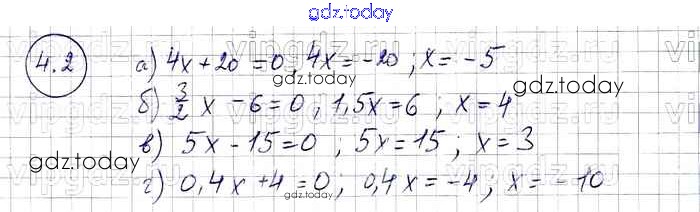 gdz.today
4.2 а) 4x+20=0 4x=-20; x=-5
gdz.today
б) 3/2 x-6=0; 1,5x=6; x=4
gdz.today
в) 5x-15=0; 5x=15; x=3
gdz.today
gdz.today
г) 0,4x+4=0; 0,4x=-4; x=-10